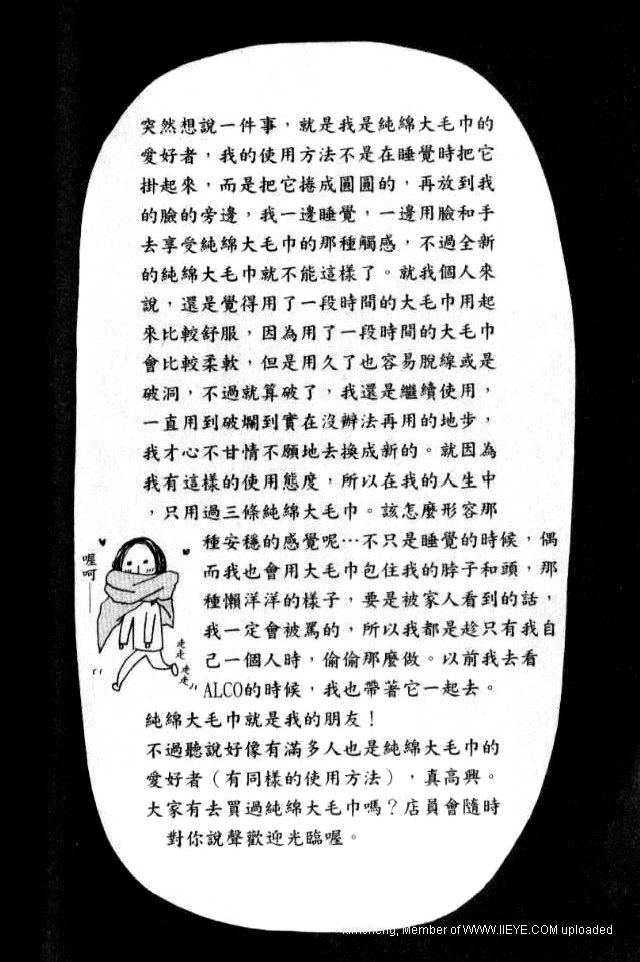 突然想說一件事，就是我是純綿大毛巾的
愛好者，我的使用方法不是在睡覺時把它
掛起來，而是把它捲成圓圓的，再放到我
的臉的旁邊，我一邊睡覺，一邊用臉和手
去享受純綿大毛巾的那種觸感，不過全新
的純綿大毛巾就不能這樣了。就我個人來
說，還是覺得用了一段時間的大毛巾用起
來比較舒服，因為用了一段時間的大毛巾
會比較柔軟，但是用久了也容易脫線或是
破洞，不過就算破了，我還是繼續使用，
一直用到破爛到實在沒辦法再用的地步，
我才心不甘情不願地去換成新的。就因為
我有這樣的使用態度，所以在我的人生中
，只用過三條純綿大毛巾。該怎麼形容那
種安穩的感覺呢…不只是睡覺的時候，偶
而我也會用大毛巾包住我的脖子和頭，那
種懶洋洋的樣子，要是被家人看到的話，
我一定會被罵的，所以我都是趁只有我自
己一個人時，偷偷那麼做。以前我去看
ALCO的時候，我也帶著它一起去。
純綿大毛巾就是我的朋友！
不過聽說好像有滿多人也是純綿大毛巾的
愛好者（有同樣的使用方法），真高興。
大家有去買過純綿大毛巾嗎？店員會隨時
對你說聲歡迎光臨喔。
喔呵——
走走走走
Member of WWW.IIEYE.COM uploaded